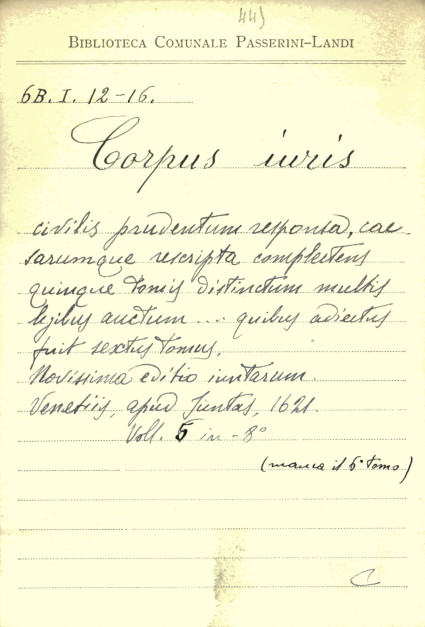 443
BIBLIOTECA COMUNALE PASSERINI-LANDI
6B. I. 12-16.
Corpus iuris
civilis prudentum responsa, cae-
sarumque rescripta complectens
quinque tomis distinctum multis
legibus auctum ... quibus adiectus
fuit sextus tomus.
Novissima editio iuntarum.
Venetiis, apud Juntas, 1621.
Voll. 5 in-8°
(manca il 6° tomo)
C